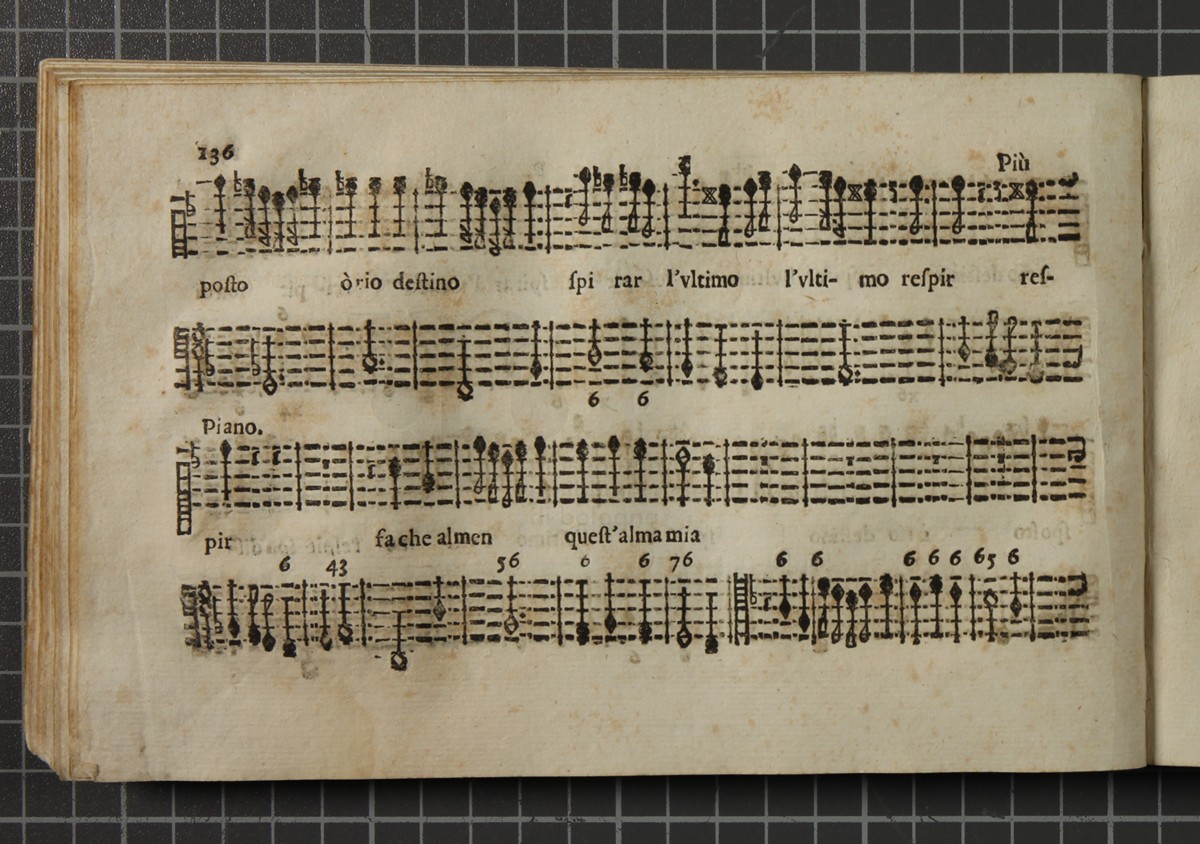 136
Più
poſto ò rio deſtino ſpi rar l'vltimo l'vlti- mo reſpir reſ-
6 6
Piano.
pir fa che almen queſt'alma mia
6 43 56 6 6 76 6 6 6 6 6 65 6